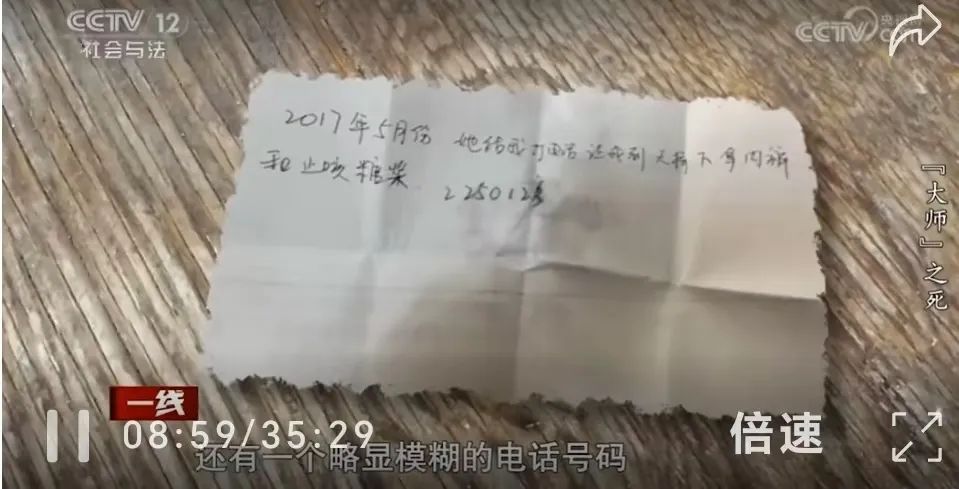 CCTV 12
社会与法
CCTV
2017年5月份 她给我打电话让我到天桥下拿内裤
和止咳糖浆
225012
『大师』之死
一线
08:59/35:29
倍速
还有一个略显模糊的电话号码